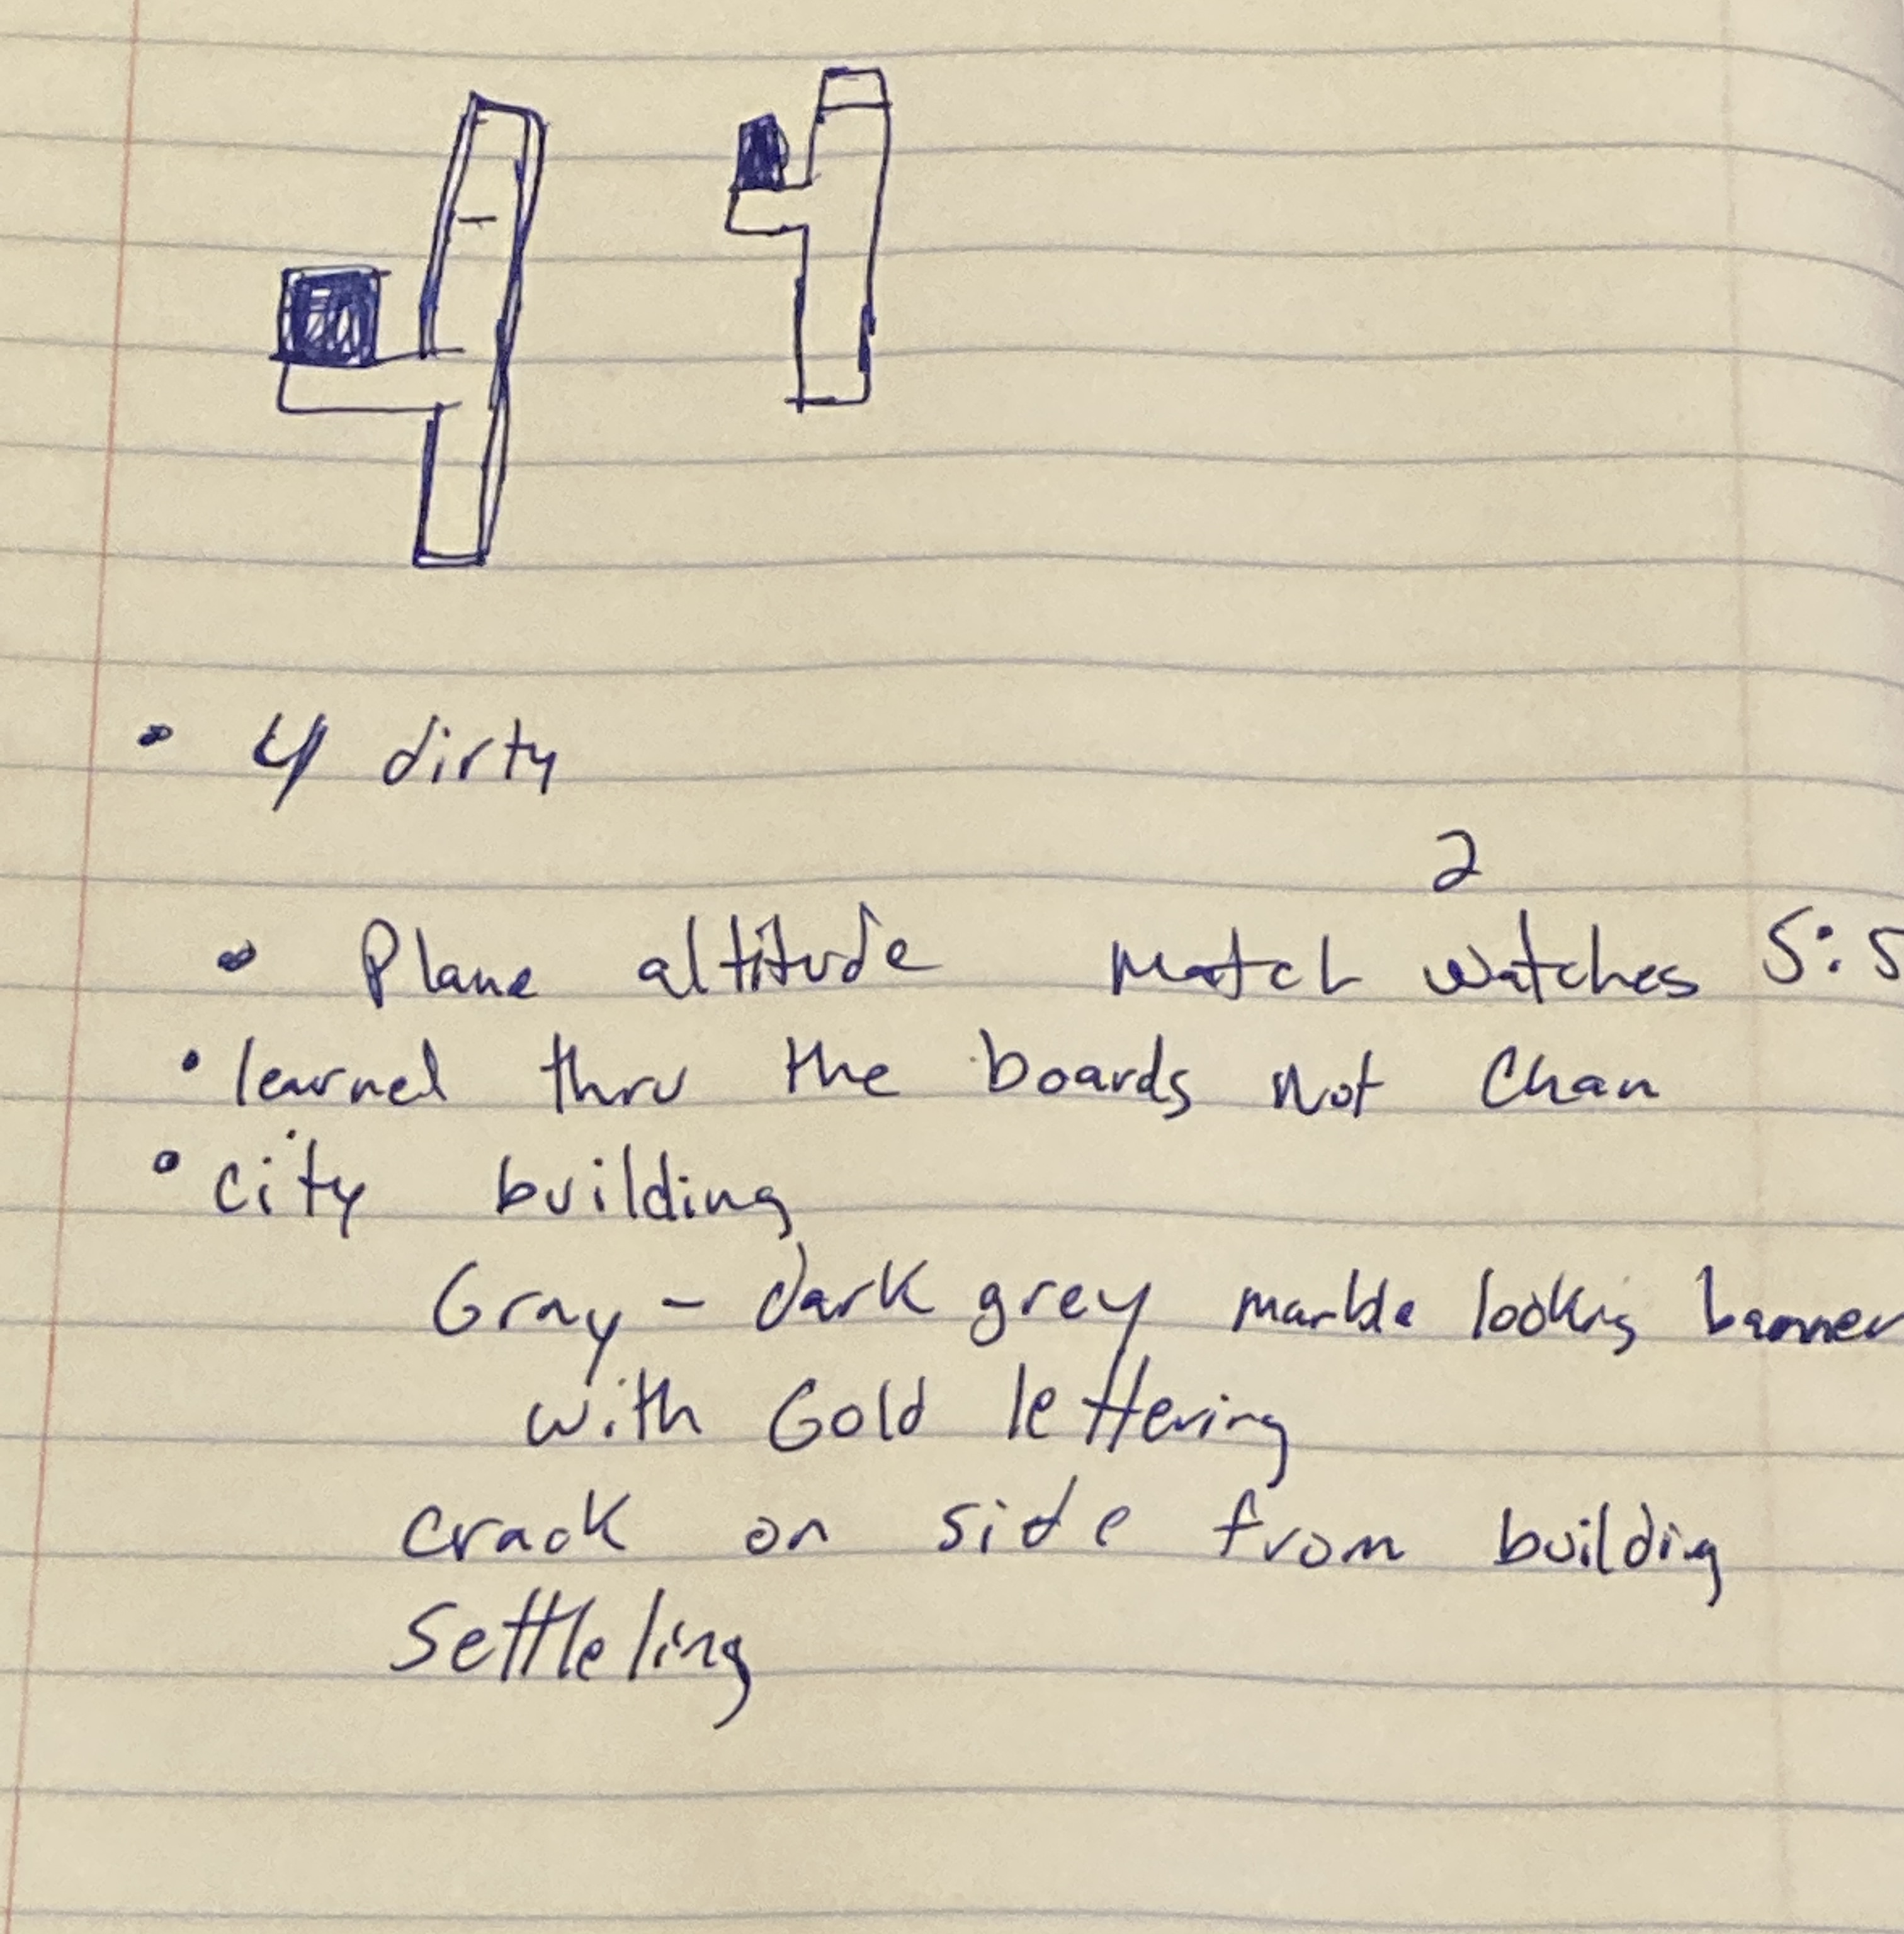 • 4 dirty
2
• Plane altitude match watches 5:5
• learned thru the boards not Chan
• city building
Gray - dark grey marble looking banner
with Gold lettering
crack on side from building
settleling